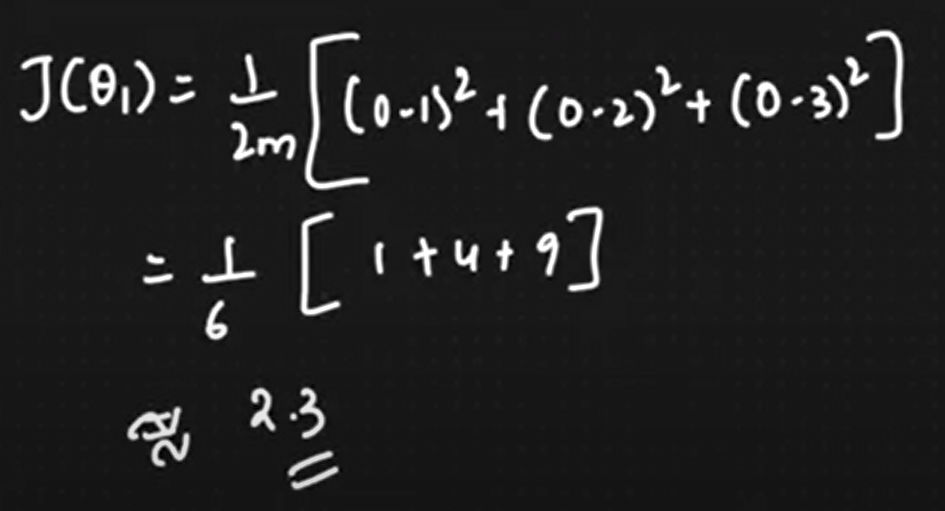 J(θ₁) = 1/2m [(0-1)² + (0-2)² + (0-3)²]
= 1/6 [1+4+9]
≈ 2.3